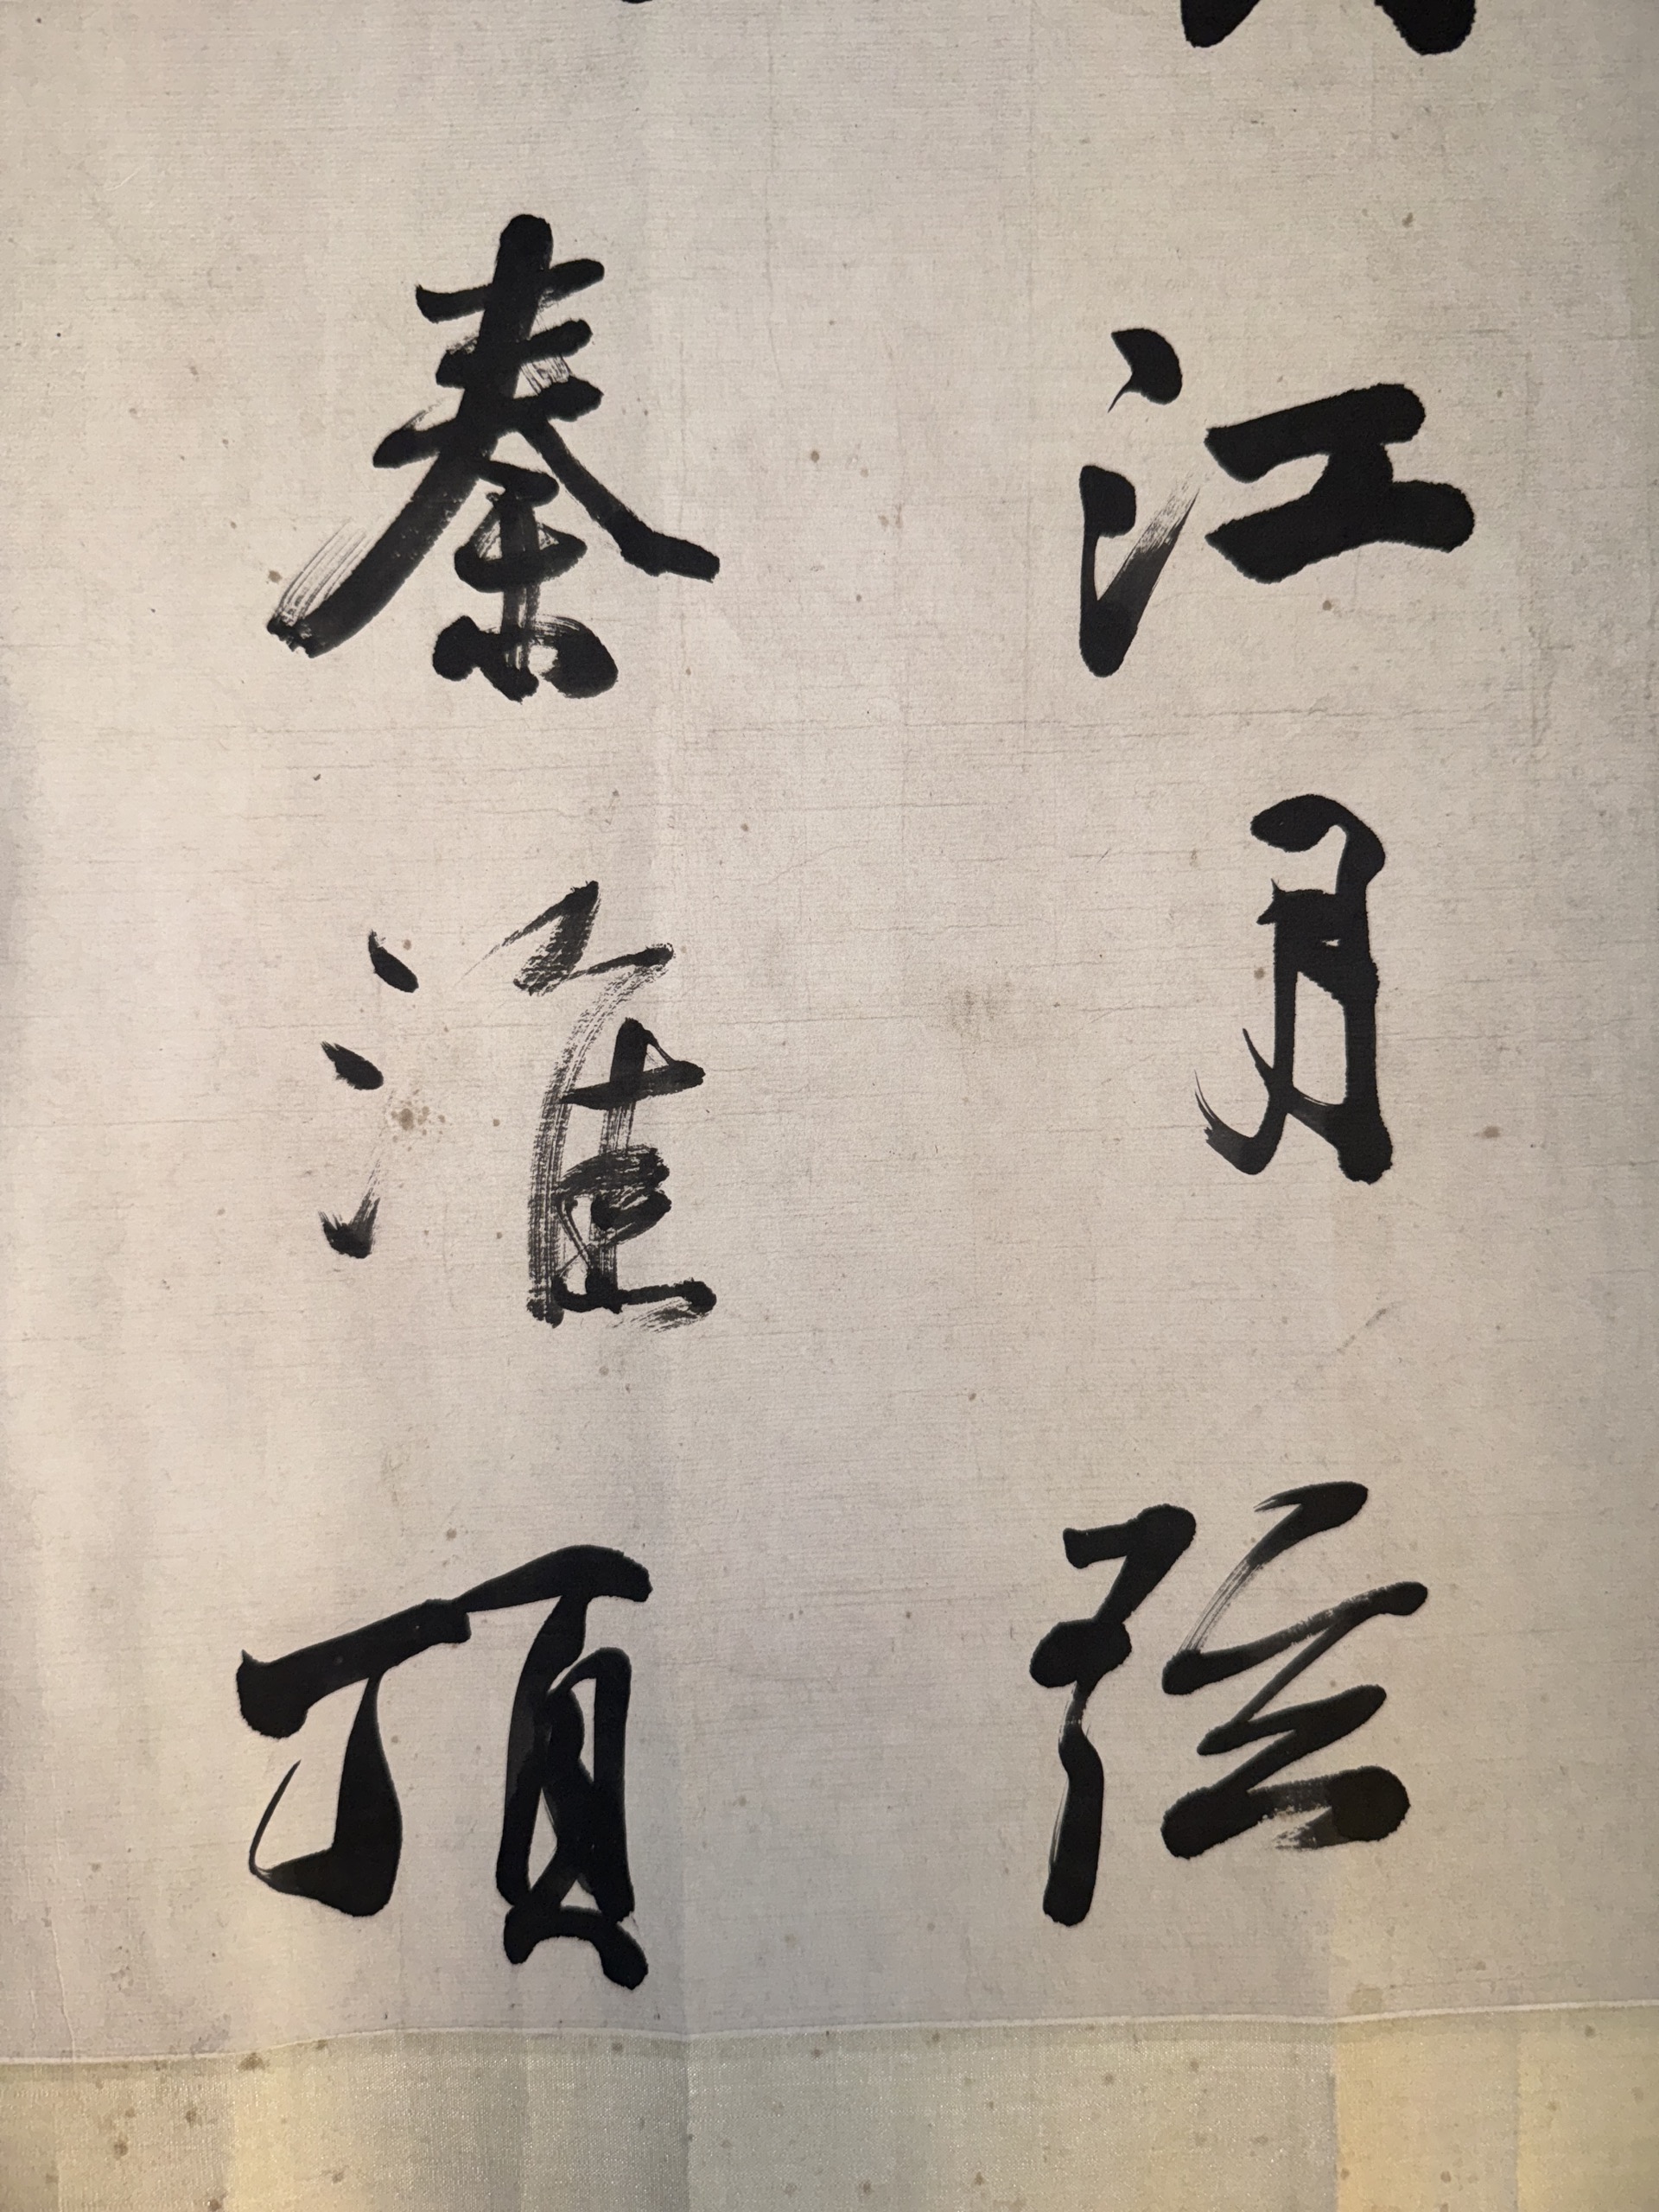 江月弦
秦淮頂